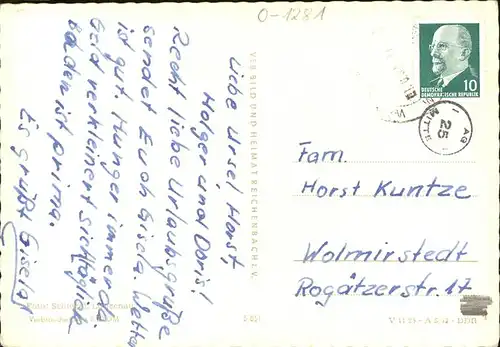 O-1281
Liebe Ursel Horst,
Holger und Doris!
Recht liebe Urlaubsgrüße
sendet Euch Gisela. Wetter
ist gut. Hunger immer da.
Geld verkleinert sich täglich.
Baden ist prima.
Es grüßt Gisela
VERSILD UND HEIMAT REICHENBACH I. V.
10
DEUTSCHE
DEMOKRATISCHE REPUBLIK
MITTE
25
Fam.
Horst Kuntze
Wolmirstedt
Rogätzerstr. 17
Foto: